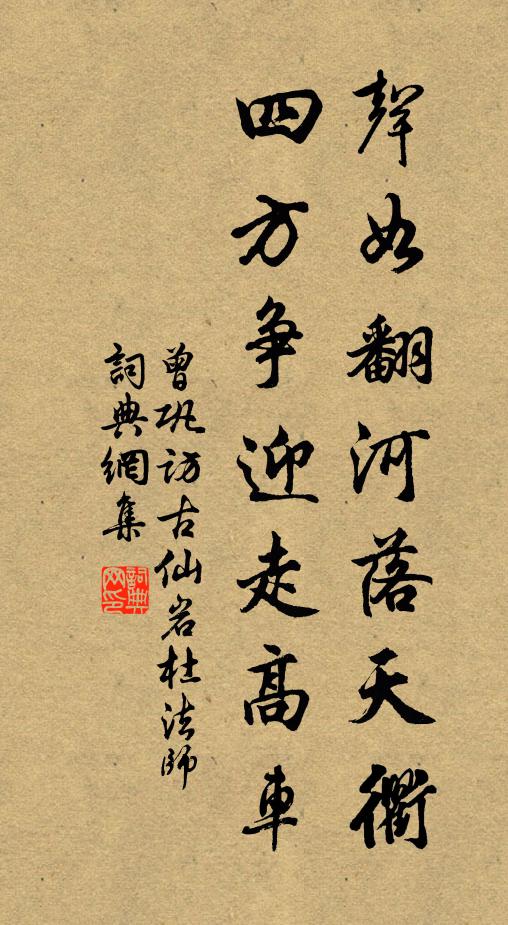 聲如翻河落天衢
四方争迎走高車
曾巩訪古仙岩杜法師
詞典網集
詞典網印